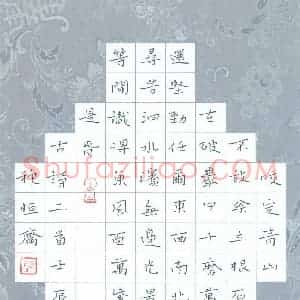 咬定青山
不放鬆立根原
在破巖中千磨萬
還堅勁任爾東西南北
尋芳泗水濱無邊光景
等閒識得東風面萬紫
是春
古詩二首壬辰
恒
Shufaziliao.com